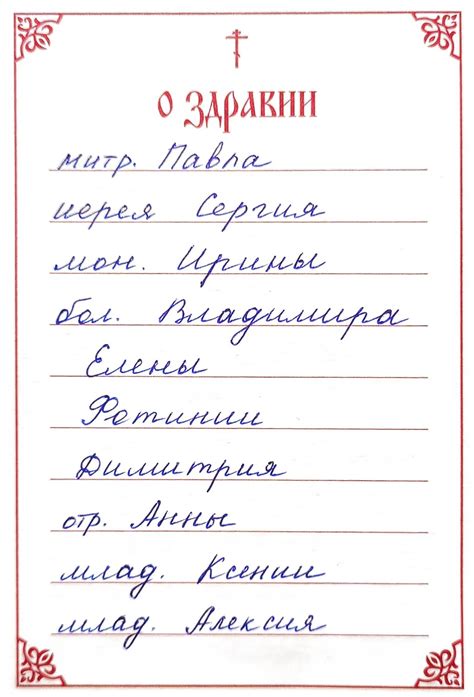 О ЗДРАВИИ
митр. Павла
иерея Сергия
мон. Ирины
бол. Владимира
Елены
Фотинии
Димитрия
отр. Анны
млад. Ксении
млад. Алексия